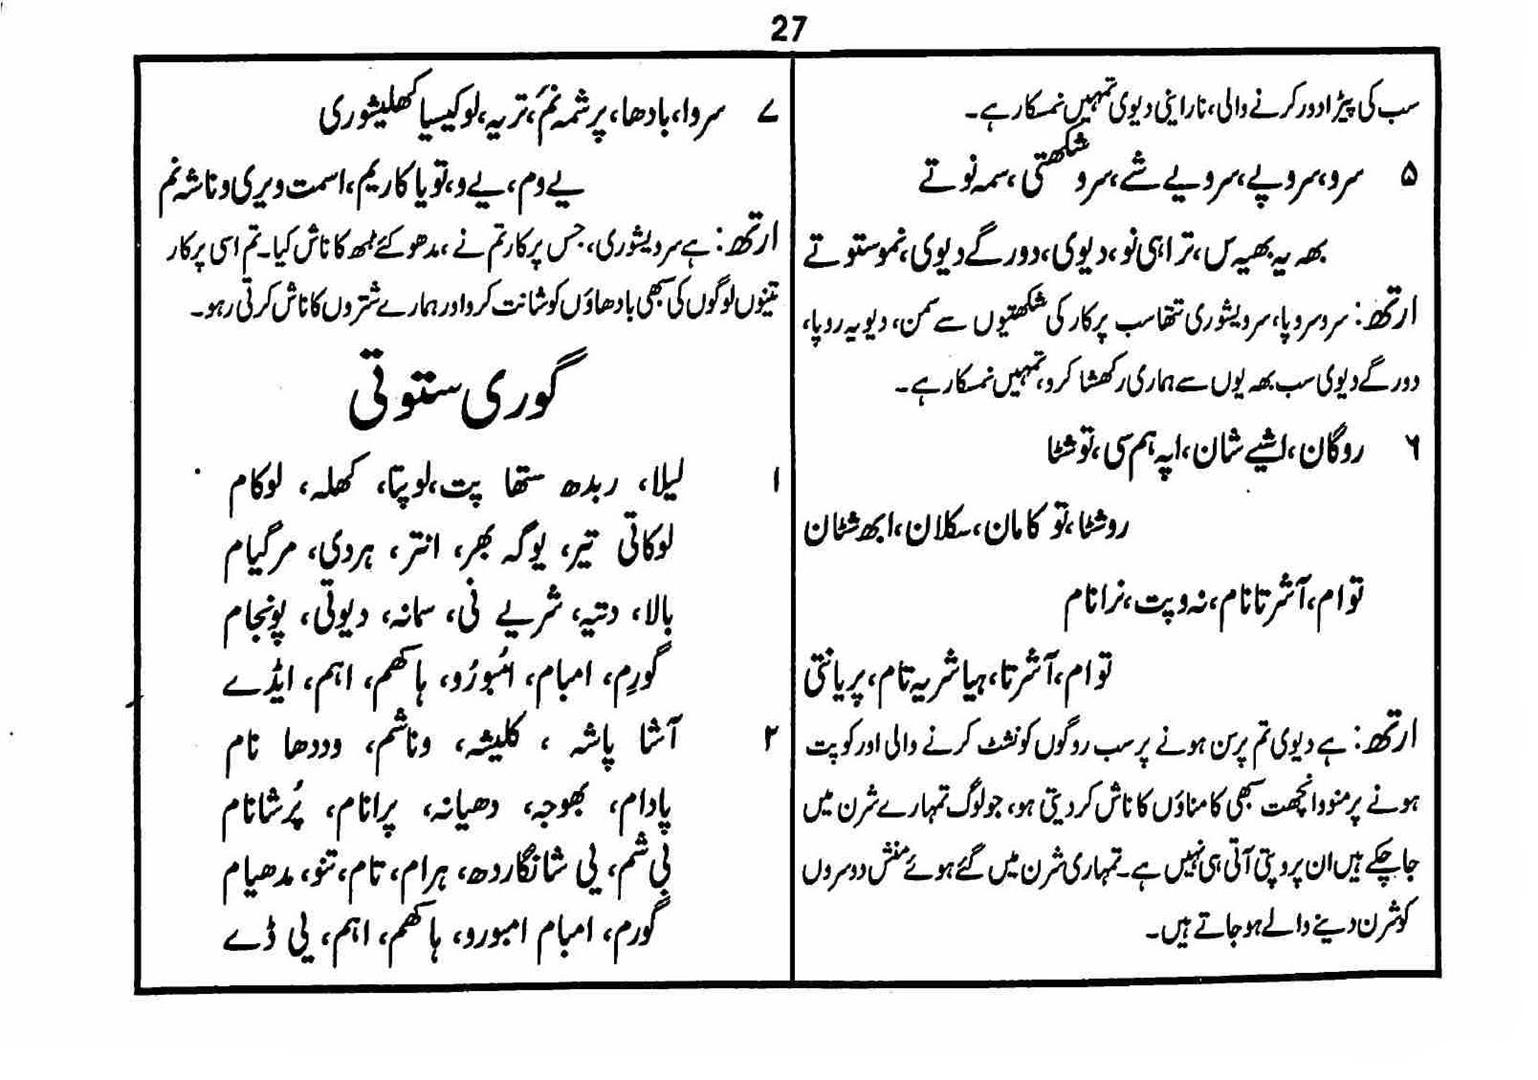 27
سب کی پیڑا دور کرنے والی، نارائنی دیوی تمہیں نمسکار ہے۔
۵ سرو، سروپے، سرویے شے، سرو شکھتی، سمہ نوتے
بھہ یہ بھیہ س، تراہی نو، دیوی، دورگے دیوی، نموستوتے
ارتھ: سرو سروپا، سرویشوری تتھا سب پرکار کی شکھتیوں سے سمن، دیویہ روپا،
دورگے دیوی سب بھہ یوں سے ہماری رکھشا کرو، تمہیں نمسکار ہے۔
۶ روگان، اشیے شان، اپہ ہم سی، توشٹا
روشٹا، تو کامان، سکلان، ابھ شٹان
توام، آشرتانام، نہ وپت، نرانام
توام، آشرتا، ہیاشریہ تام، پریانتی
ارتھ: ہے دیوی تم پرسن ہونے پر سب روگوں کو نشٹ کرنے والی اور کوپت
ہونے پر منووانچھت سبھی کامناؤں کا ناش کردیتی ہو، جو لوگ تمہارے شرن میں
جاچکے ہیں ان پر وپتی آتی ہی نہیں ہے۔ تمہاری شرن میں گئے ہوئے منش دوسروں
کو شرن دینے والے ہو جاتے ہیں۔
۷ سروا، بادھا، پرشمہ نم، تریہ، لوکیسیا کھلیشوری
یے وم، یے و، تویا کاریم، اسمت ویری وناشہ نم
ارتھ: ہے سرویشوری، جس پرکار تم نے، مدھو کئے ٹبھ کا ناش کیا۔ تم اسی پرکار
تینوں لوگوں کی سبھی بادھاؤں کو شانت کرو اور ہمارے شتروں کا ناش کرتی رہو۔
گوری ستوتی
۱ لیلا، ربدھ ستھا پت، لوپتا، کھلہ، لوکام
لوکاتی تیر، یوگہ بھر، انتر، ہردی، مرگیام
بالا، دتیہ، شریے نی، سمانہ، دیوتی، پونجام
گورم، امبام، امبورُو، ہاکھم، اہم، ایڈے
۲ آشا پاشہ، کلیشہ، وناشم، وددھا نام
پادام، بھوجہ، دھیانہ، پرانام، پُرشانام
بی شم، یی شانگاردھ، ہرام، تام، تنو، مدھیام
گورم، امبام امبورو، ہاکھم، اہم، یی ڈے